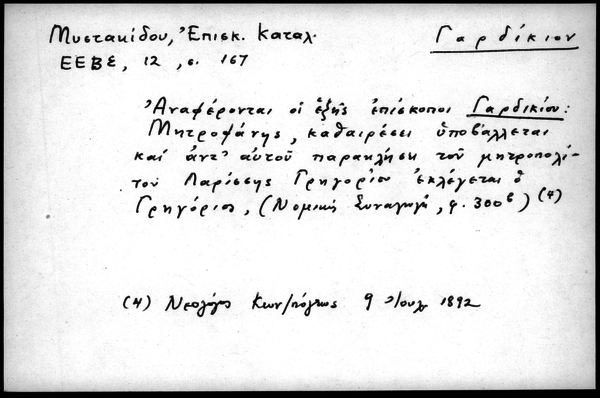 Μυστακίδου, Ἐπισκ. Καταλ. Γαρδίκιον
ΕΕΒΣ, 12, σ. 167
Ἀναφέρονται οἱ ἑξῆς ἐπίσκοποι Γαρδικίου:
Μητροφάνης, καθαιρέσει ὑποβάλλεται
καί ἀντ' αὐτοῦ παρακλήσει τοῦ μητροπολί-
του Λαρίσσης Γρηγορίου ἐκλέγεται ὁ
Γρηγόριος, (Νομική Συναγωγή, φ. 300β) (4)
(4) Νεολόγος Κων/πόλεως 9 Ἰουλ 1892